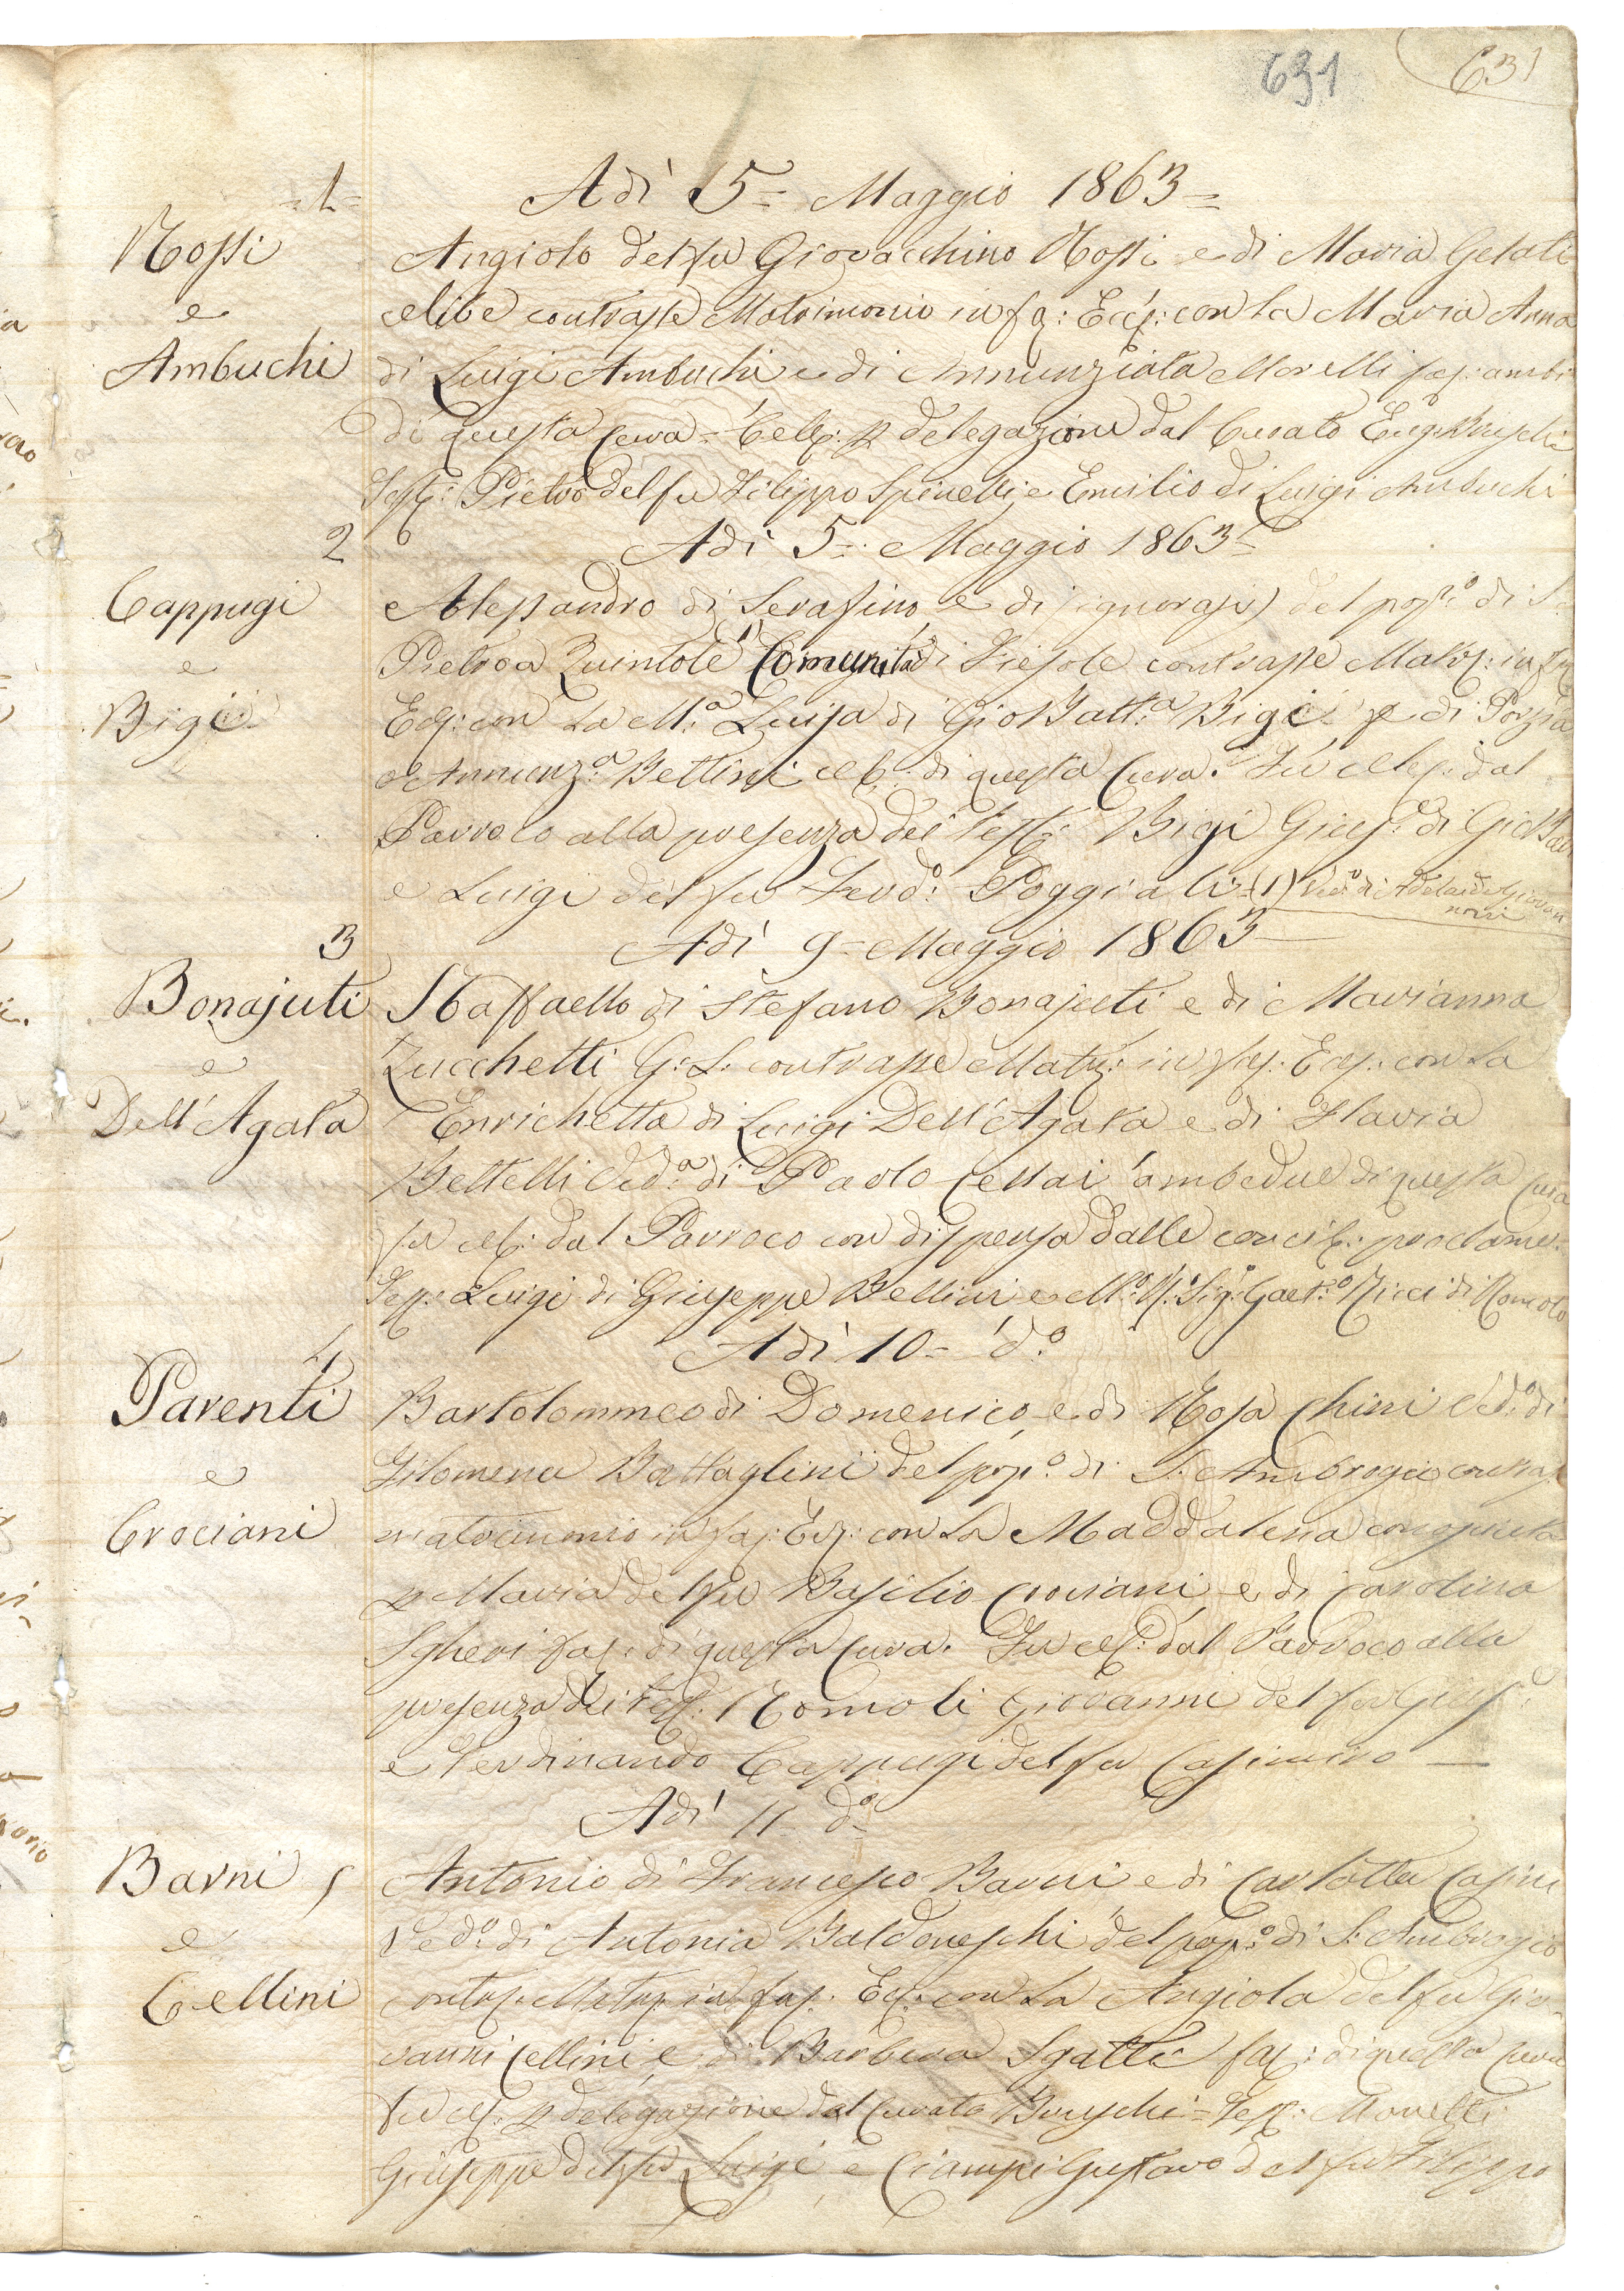 631
631
=1=
Adì 5= Maggio 1863=
Rossi
e
Ambuchi
Angiolo del fu Giovacchino Rossi e di Maria Gelati
celibe contrasse Matrimonio in fa: Eccl: con la Maria Anna
di Luigi Ambuchi e di Annunziata Morelli fac: ambi
di questa Cura= Celeb: p delegazione dal Curato
Test: Pietro del fu Filippo Spinelli e Emilio di Luigi Ambuchi
2
Adì 5= Maggio 1863=
Cappugi
e
Bigi
Alessandro di Serafino, e di (ignorasi) del pop:º di S.
Pietro a Quintole (1) Comunità di Fiesole contrasse Matr: in fac
Ecl: con la M:ª Luisa di Gio Batt:ª Bigi e di Porzia
Annunz:ª Bettini celb: di questa Cura. Fu celeb: dal
Parroco alla presenza dei Test: Bigi Gius:e di Gio Batt
e Luigi del fu Ferd:º Poggiali= (1) Ved:º di Adelaide Giovan
noni
3
Adì 9= Maggio 1863
Bonajuti
e
Dell' Agata
Raffaello di Stefano Bonajuti e di Marianna
Zucchetti G: L: contrasse Matr: in fac: Ecl: con la
Enrichetta di Luigi Dell' Agata e di Flavia
Bettelli Ved:ª di Paolo Cellai ambedue di questa Cura
fu celeb: dal Parroco con dispensa dalle concil: proclame.
Test: Luigi di Giuseppe Bellini e M:º R: Sig:e Gaet:º Ricci di Romolo
4
Adì 10= dº
Parenti
e
Crociani
Bartolommeo di Domenico, e di Rosa Chini Ved:º di
Filomena Battaglini del pop:º di S. Ambrogio contras
matrimonio in fac: Ecl: con la Maddalena
p Maria del fu Basilio Crociani, e di Carolina
Sgheri fac: di questa Cura. Fu celeb: dal Parroco alla
presenza dei Test: Romoli Giovanni del fu Gius:e
e Ferdinando Cappugi del fu Casimiro —
Adì 11 dº
Barni 5
e
Cellini
Antonio di Francesco Barni e di Carlotta Casini
Ved:º di Antonia Baldoneschi del pop:º di S. Ambrogio
contras: Matr: in fac: Ecl: con la Angiola del fu Gio-
vanni Cellini, e di Barbera Sgatti fac: di questa Cura
Fu celeb: p delegazione dal Curato Bruschi= Test: Morelli
Giuseppe del fu Luigi, e Ciampi Gustavo del fu Filippo